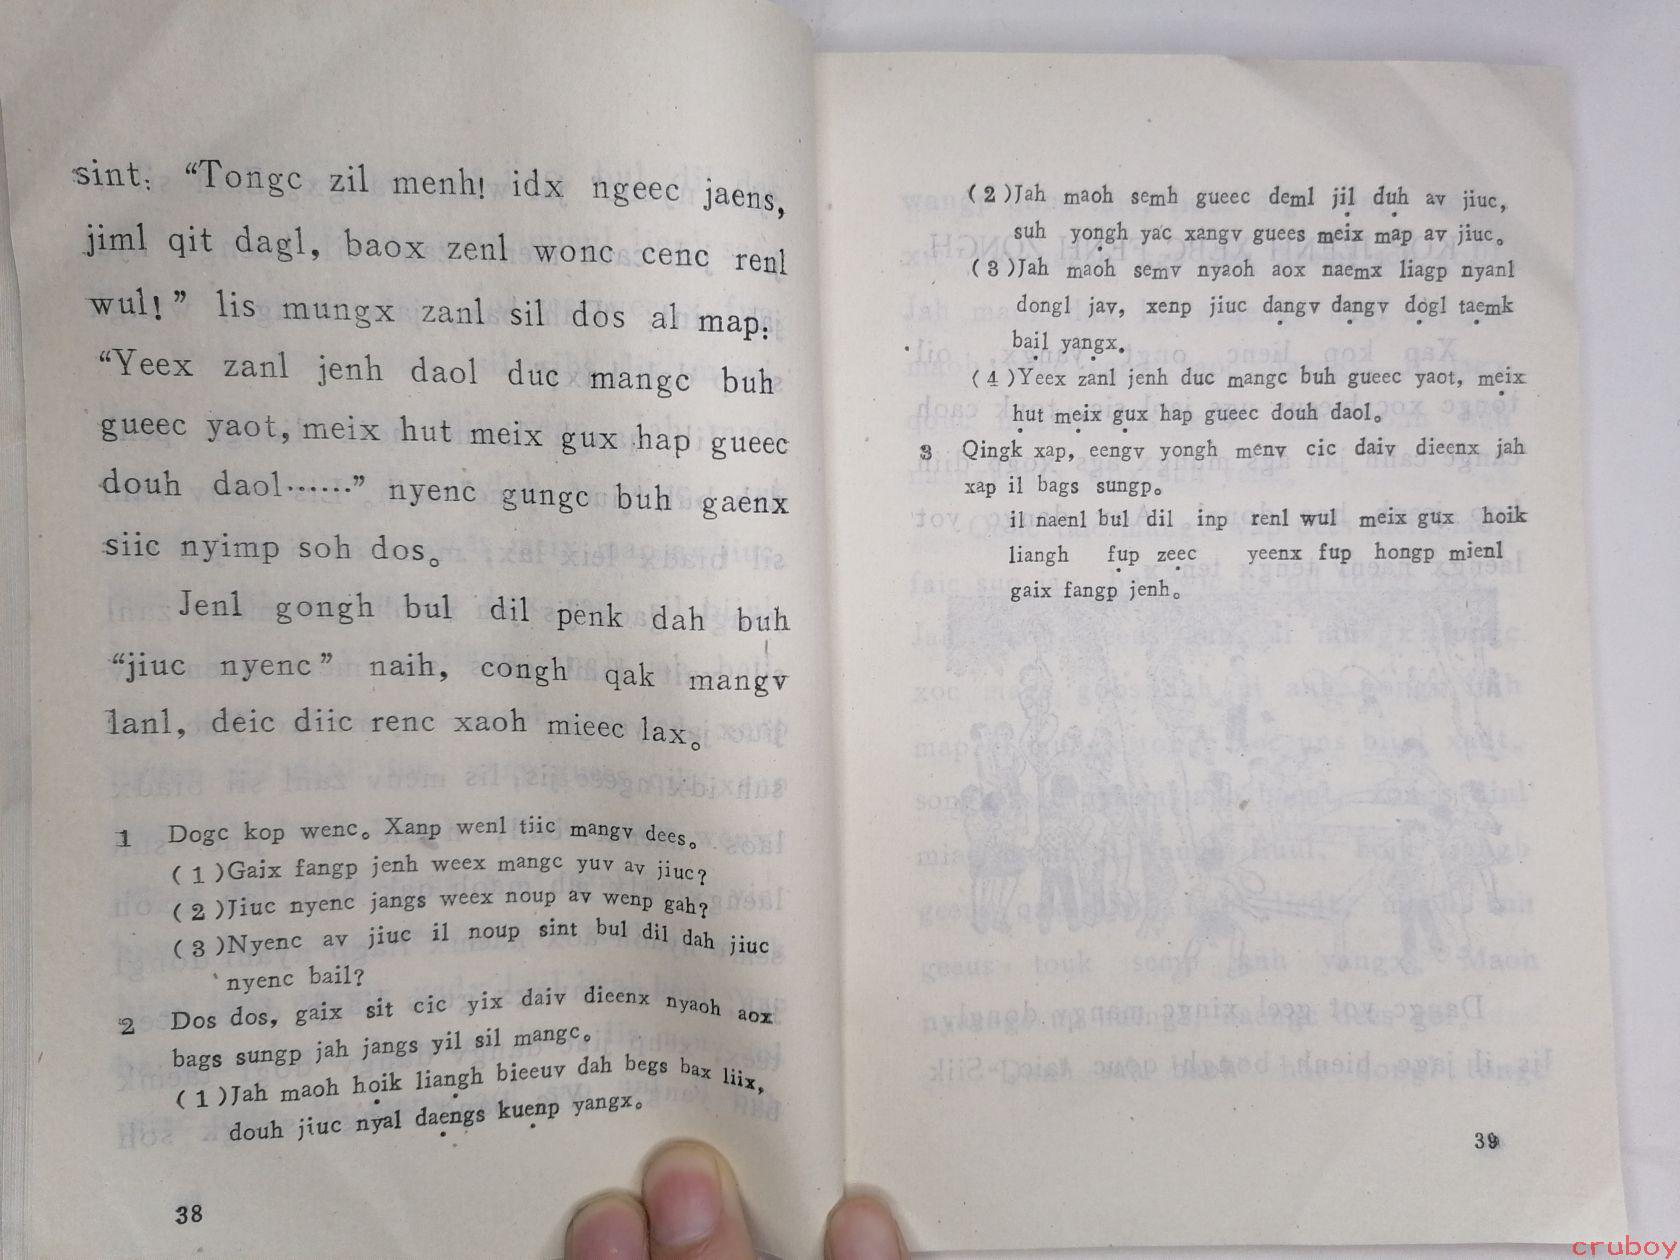 sint: “Tongc zil menh! idx ngeec jaens,
jiml qit dagl, baox zenl wonc cenc renl
wul!” lis mungx zanl sil dos al map:
“Yeex zanl jenh daol duc mangc buh
gueec yaot, meix hut meix gux hap gueec
douh daol……” nyenc gungc buh gaenx
siic nyimp soh dos。
Jenl gongh bul dil penk dah buh
“jiuc nyenc” naih, congh qak mangv
lanl, deic diic renc xaoh mieec lax。
1 Dogc kop wenc。 Xanp wenl tiic mangv dees。
(1)Gaix fangp jenh weex mangc yuv av jiuc?
(2)Jiuc nyenc jangs weex noup av wenp gah?
(3)Nyenc av jiuc il noup sint bul dil dah jiuc
nyenc bail?
2 Dos dos, gaix sit cic yix daiv dieenx nyaoh aox
bags sungp jah jangs yil sil mangc。
(1)Jah maoh hoik liangh bieeuv dah begs bax liix,
douh jiuc nyal daengs kuenp yangx。
38
(2)Jah maoh semh gueec deml jil duh av jiuc,
suh yongh yac xangv guees meix map av jiuc。
(3)Jah maoh semv nyaoh aox naemx liagp nyanl
dongl jav, xenp jiuc dangv dangv dogl taemk
bail yangx.
(4)Yeex zanl jenh duc mangc buh gueec yaot, meix
hut meix gux hap gueec douh daol。
3 Qingk xap, eengv yongh menv cic daiv dieenx jah
xap il bags sungp。
il naenl bul dil inp renl wul meix gux hoik
liangh fup zeec yeenx fup hongp mienl
gaix fangp jenh。
39
cruboy